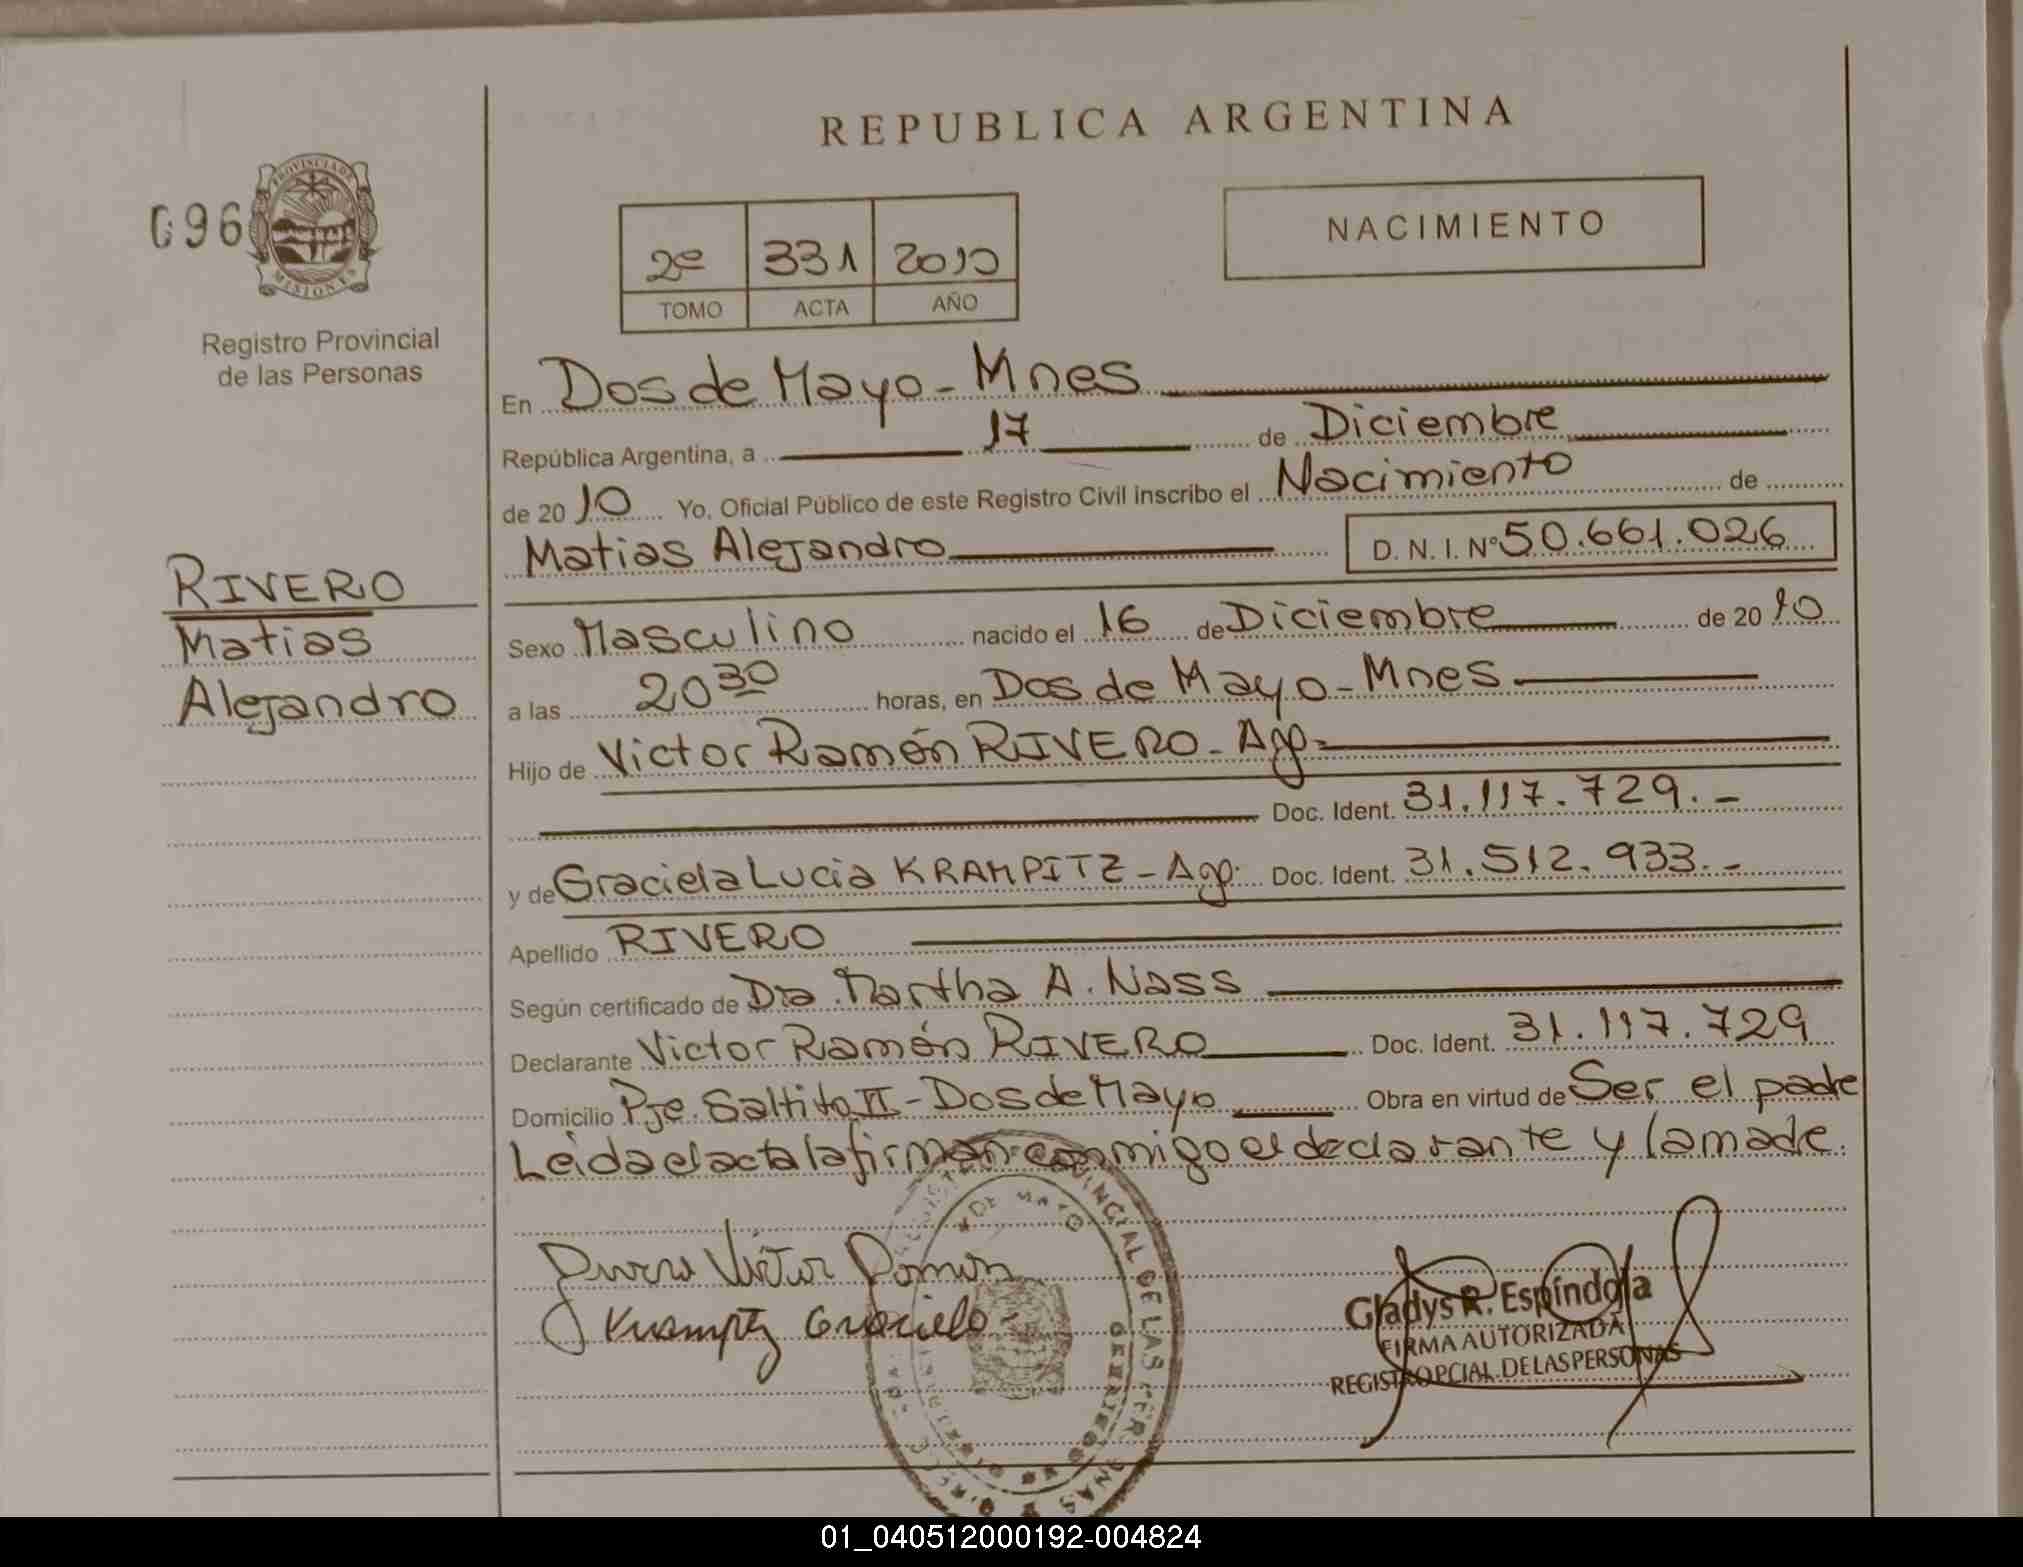 REPUBLICA ARGENTINA
096
PROVINCIA DE
MISIONES
Registro Provincial
de las Personas
2º 331 2010
TOMO ACTA AÑO
NACIMIENTO
En Dos de Mayo - Mnes
República Argentina, a 17 de Diciembre
de 2010 Yo, Oficial Público de este Registro Civil inscribo el Nacimiento de
Matias Alejandro D. N. I. Nº 50.661.026
RIVERO
Matias
Alejandro
Sexo Masculino nacido el 16 de Diciembre de 2010
a las 20 30 horas, en Dos de Mayo - Mnes
Hijo de Victor Ramón RIVERO - Agp-
Doc. Ident. 31.117.729.-
y de Graciela Lucia KRAMPITZ - Agp. Doc. Ident. 31.512.933.-
Apellido RIVERO
Según certificado de Dra. Martha A. Nass
Declarante Victor Ramón RIVERO Doc. Ident. 31.117.729
Domicilio Pje. Saltito II - Dos de Mayo Obra en virtud de Ser el padre
Leida el acta la firman conmigo el declarante y la madre.
Victor Ramon
Krampitz Graciela
Gladys R. Espíndola
FIRMA AUTORIZADA
REGISTRO PCIAL. DE LAS PERSONAS
01_040512000192-004824